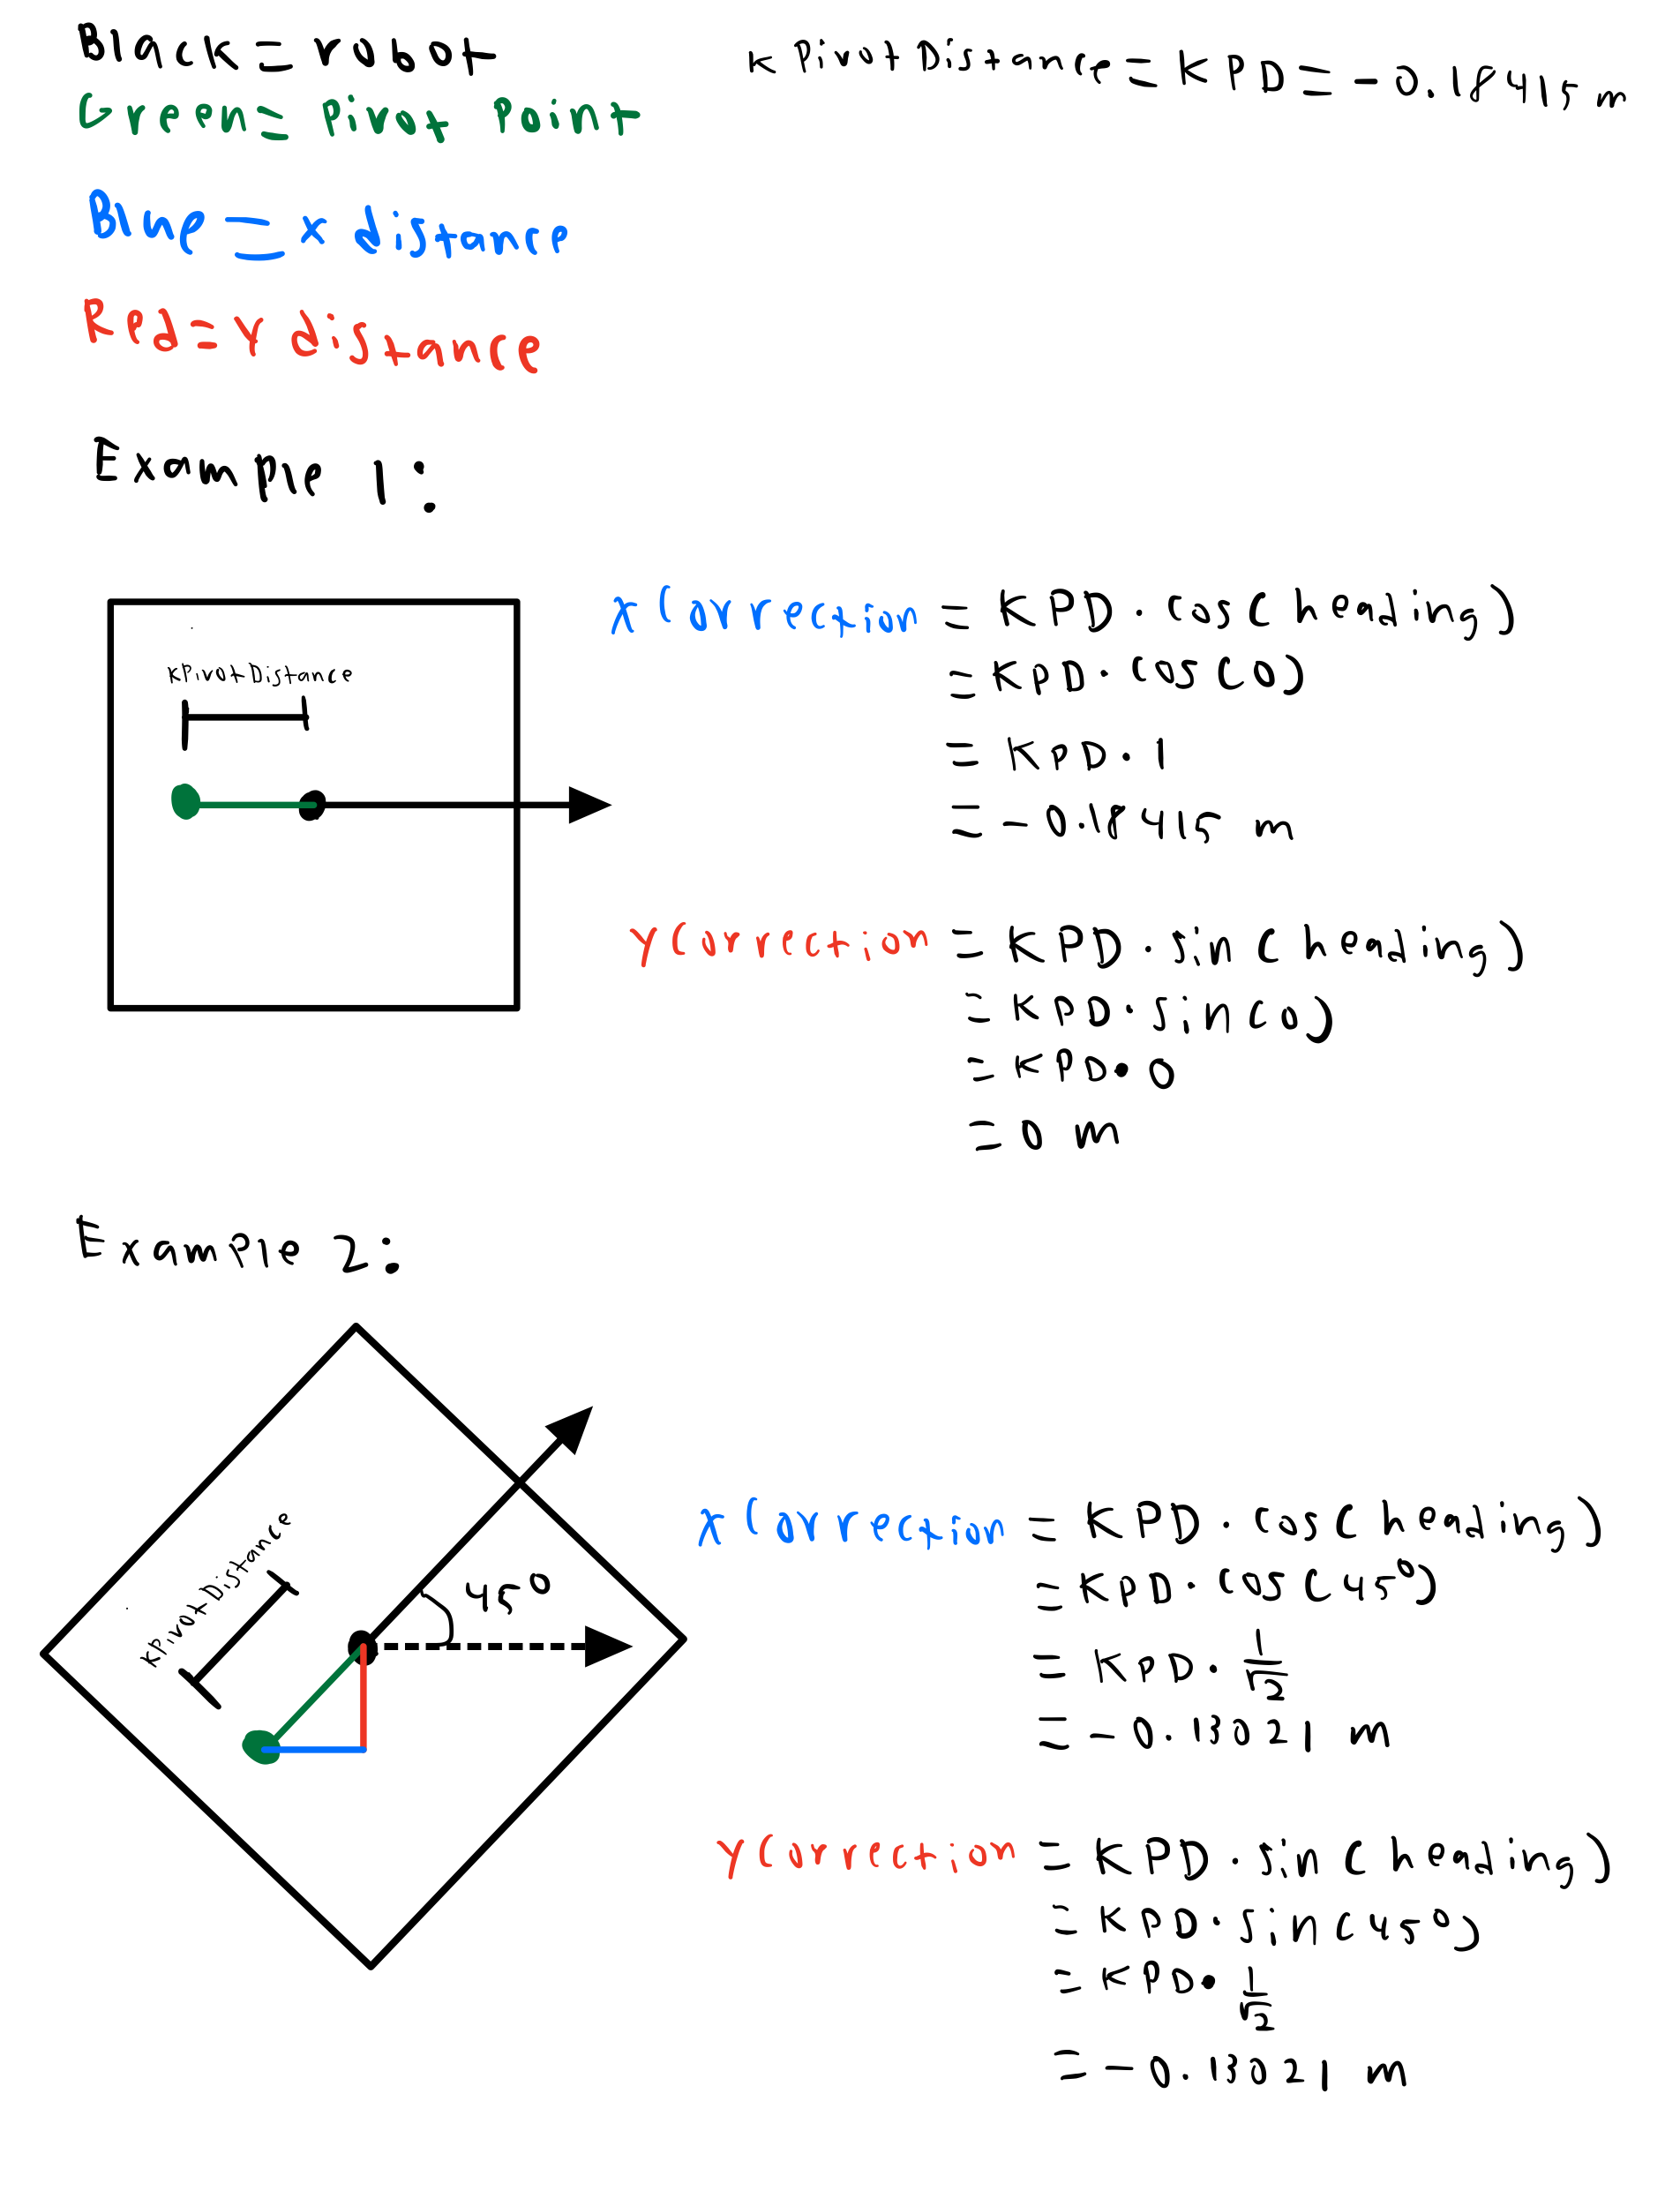 Black = robot
kPivotDistance = KPD = -0.18415 m
Green = Pivot Point
Blue = x distance
Red = Y distance
Example 1:
kPivotDistance
x Correction = KPD · cos(heading)
= KPD · cos(0)
= KPD · 1
= -0.18415 m
Y Correction = KPD · sin(heading)
= KPD · sin(0)
= KPD · 0
= 0 m
Example 2:
kPivotDistance
45°
x Correction = KPD · cos(heading)
= KPD · cos(45°)
= KPD · 1/√2
= -0.13021 m
Y Correction = KPD · sin(heading)
= KPD · sin(45°)
= KPD · 1/√2
= -0.13021 m